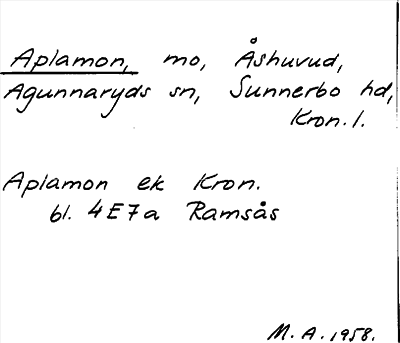 Aplamon, mo, Åshuvud,
Agunnaryds sn, Sunnerbo hd,
Kron. l.
Aplamon ek Kron.
bl. 4E7a Ramsås
M.A. 1958.